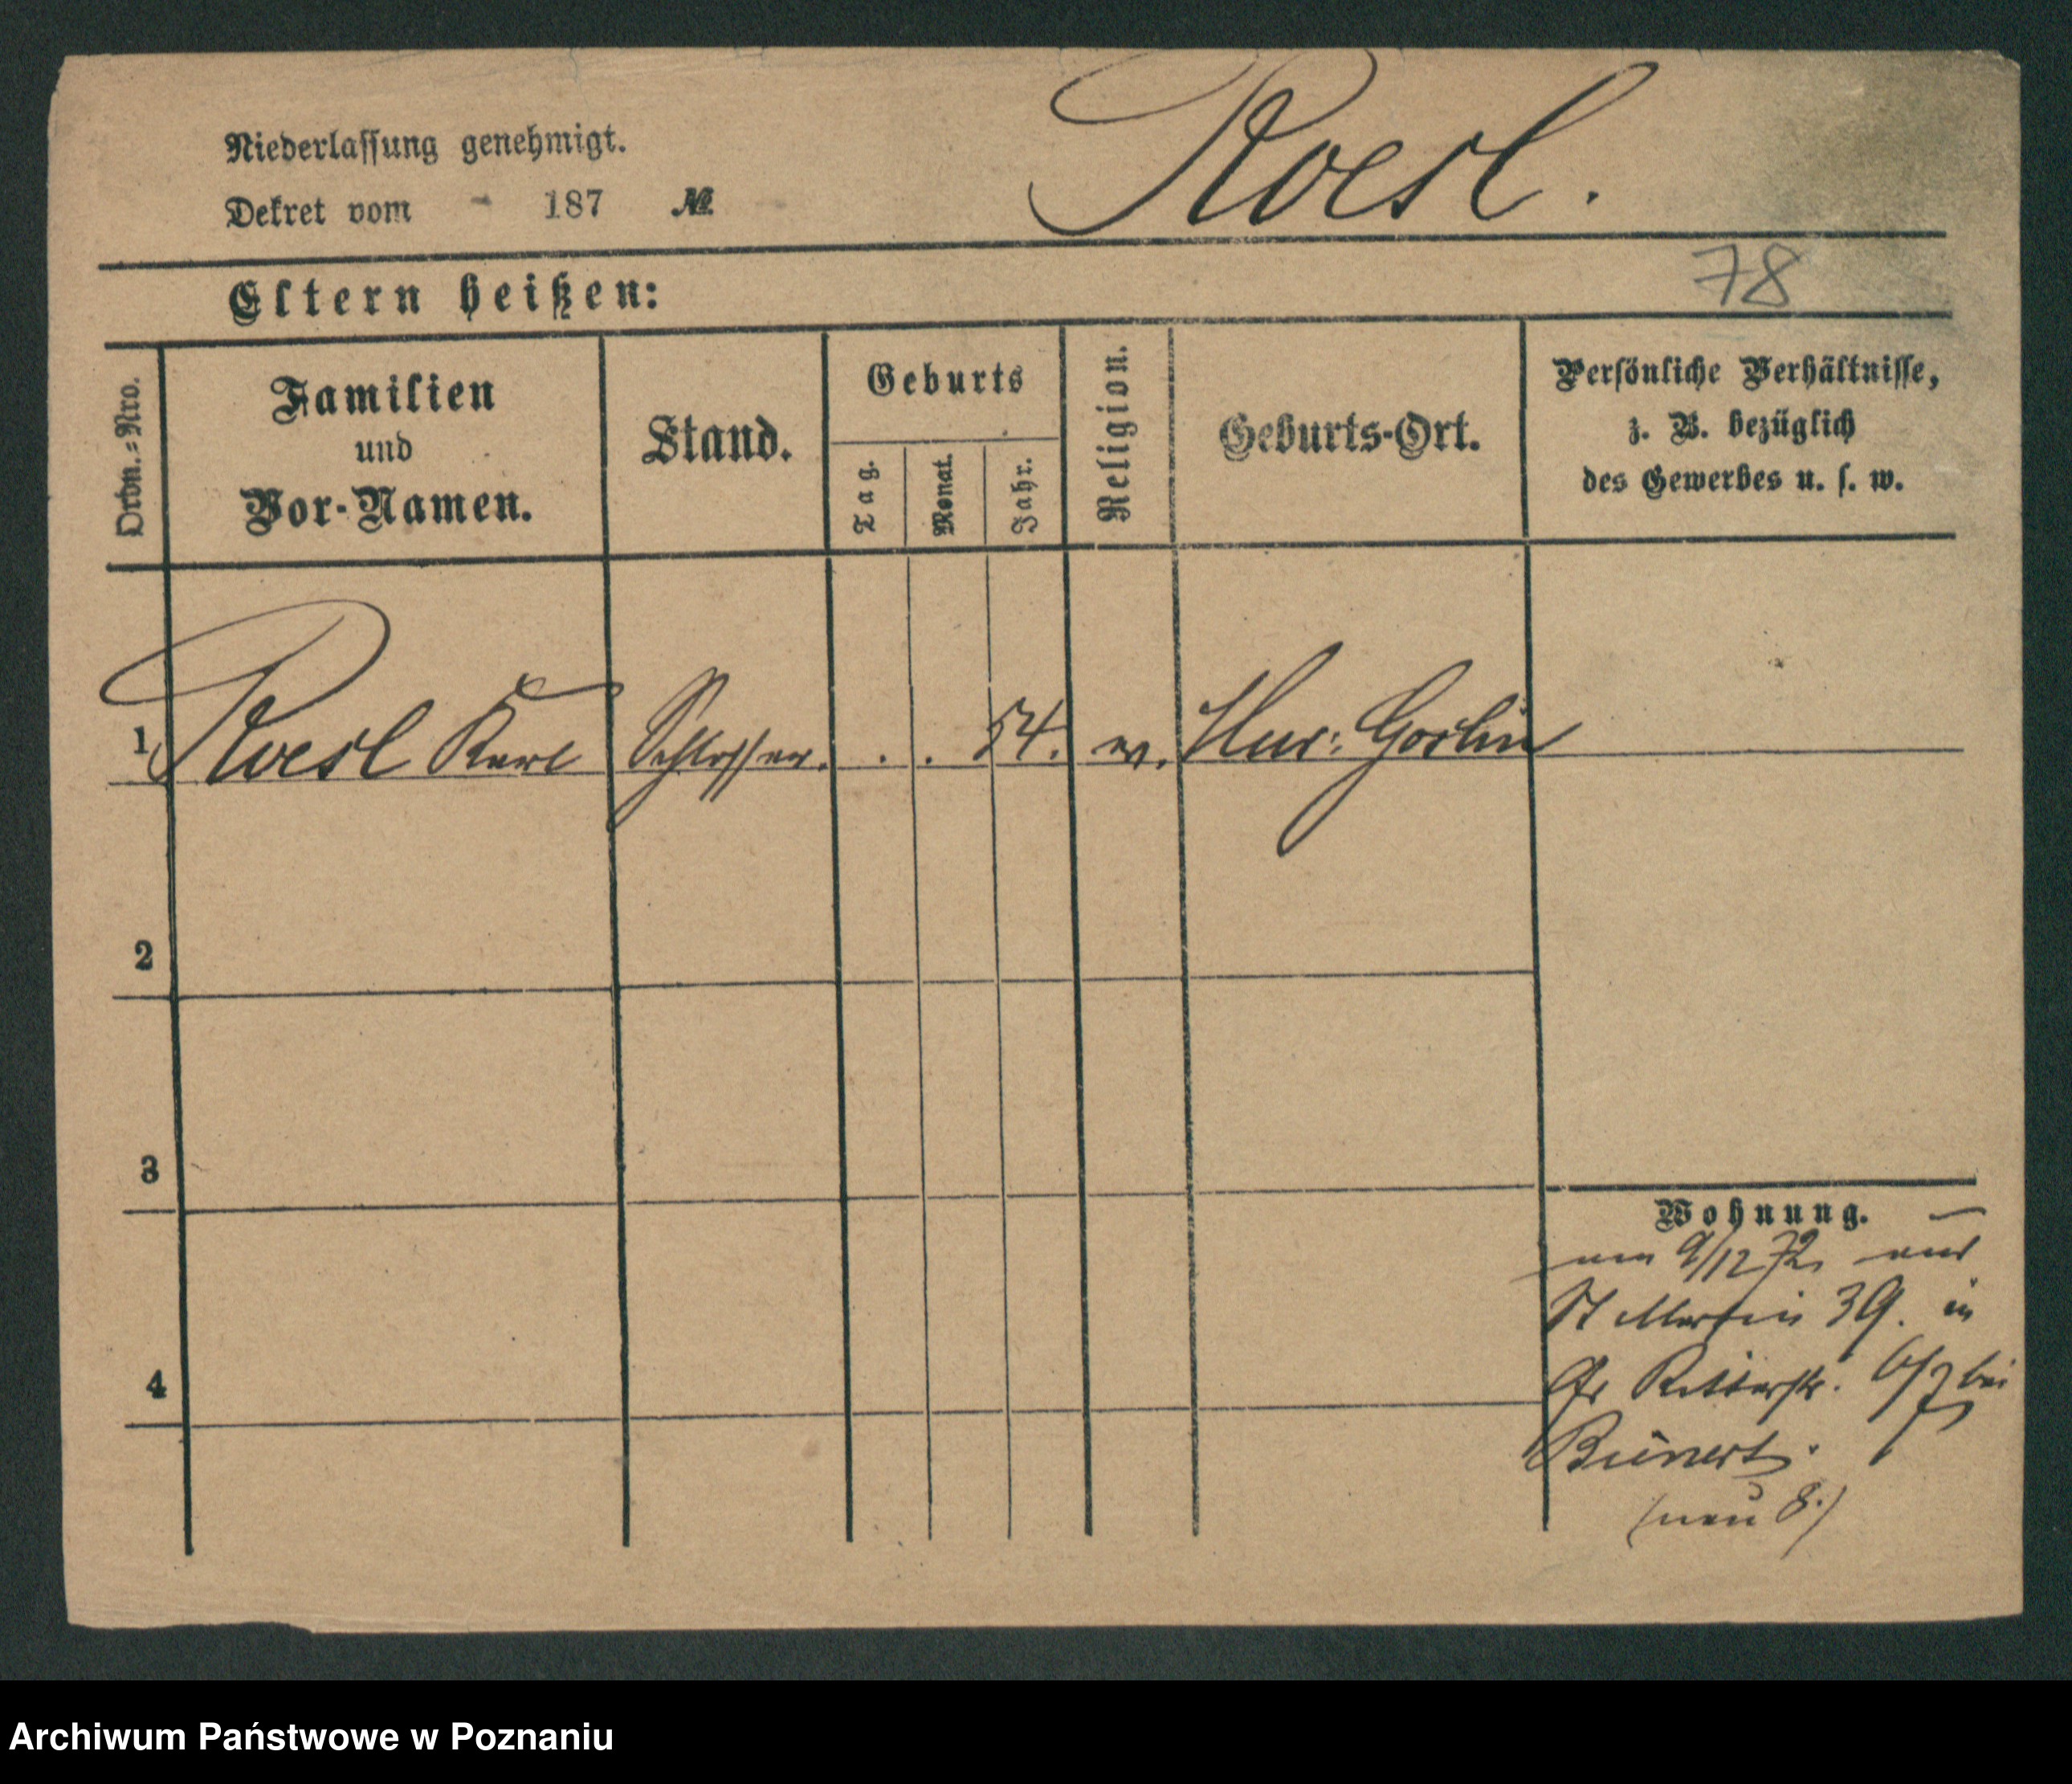 Niederlassung genehmigt.
Dekret vom 187 №
Roesl.
78
Eltern heißen:
Ordn.=Nro.
Familien
und
Vor-Namen.
Stand.
Geburts
Tag.
Monat.
Jahr.
Religion.
Geburts-Ort.
Persönliche Verhältnisse,
z. B. bezüglich
des Gewerbes u. s. w.
1 Roesl Karl Schlosser. . . 54. Goslin
2
3
4
Wohnung.
9/12 72
St Martin 39. in
Gr Ritterstr. 6/7 bei
(neu 8.)
Archiwum Państwowe w Poznaniu